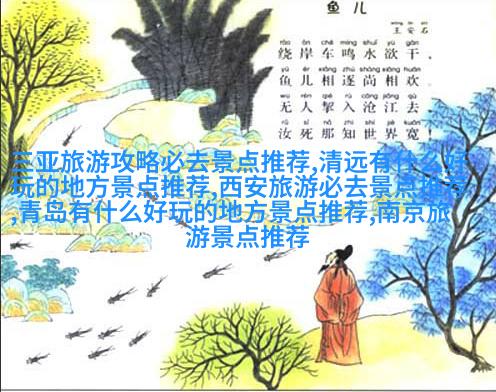 鱼儿
wáng ān shí
王安石
rào àn chē míng shuǐ yù gān
绕岸车鸣水欲干，
yú ér xiāng zhú shàng xiāng huān
鱼儿相逐尚相欢。
wú rén qiè rù cāng jiāng qù
无人挈入沧江去，
rǔ sǐ nǎ zhī shì jiè kuān
汝死那知世界宽！
三亚旅游攻略必去景点推荐,清远有什么好
玩的地方景点推荐,西安旅游必去景点推荐
,青岛有什么好玩的地方景点推荐,南京旅
游景点推荐